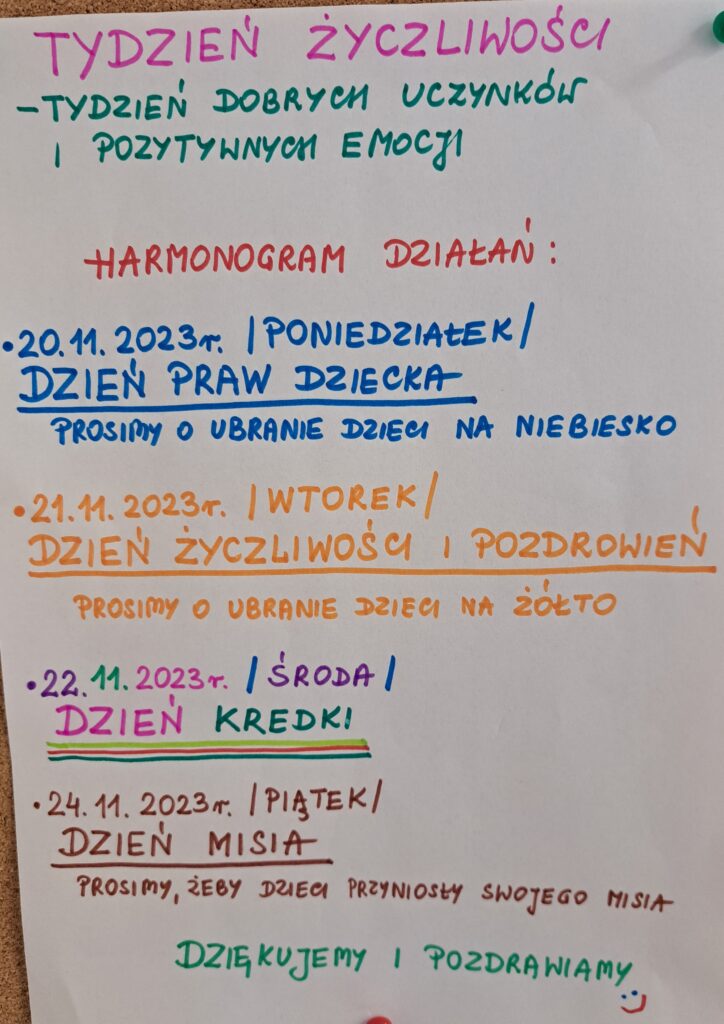 TYDZIEŃ ŻYCZLIWOŚCI
- TYDZIEŃ DOBRYCH UCZYNKÓW
I POZYTYWNYCH EMOCJI
HARMONOGRAM DZIAŁAŃ:
• 20.11.2023r. /PONIEDZIAŁEK/
DZIEŃ PRAW DZIECKA
PROSIMY O UBRANIE DZIECI NA NIEBIESKO
• 21.11.2023r. /WTOREK/
DZIEŃ ŻYCZLIWOŚCI I POZDROWIEŃ
PROSIMY O UBRANIE DZIECI NA ŻÓŁTO
• 22.11.2023r. /ŚRODA/
DZIEŃ KREDKI
• 24.11.2023r. /PIĄTEK/
DZIEŃ MISIA
PROSIMY, ŻEBY DZIECI PRZYNIOSŁY SWOJEGO MISIA
DZIĘKUJEMY I POZDRAWIAMY